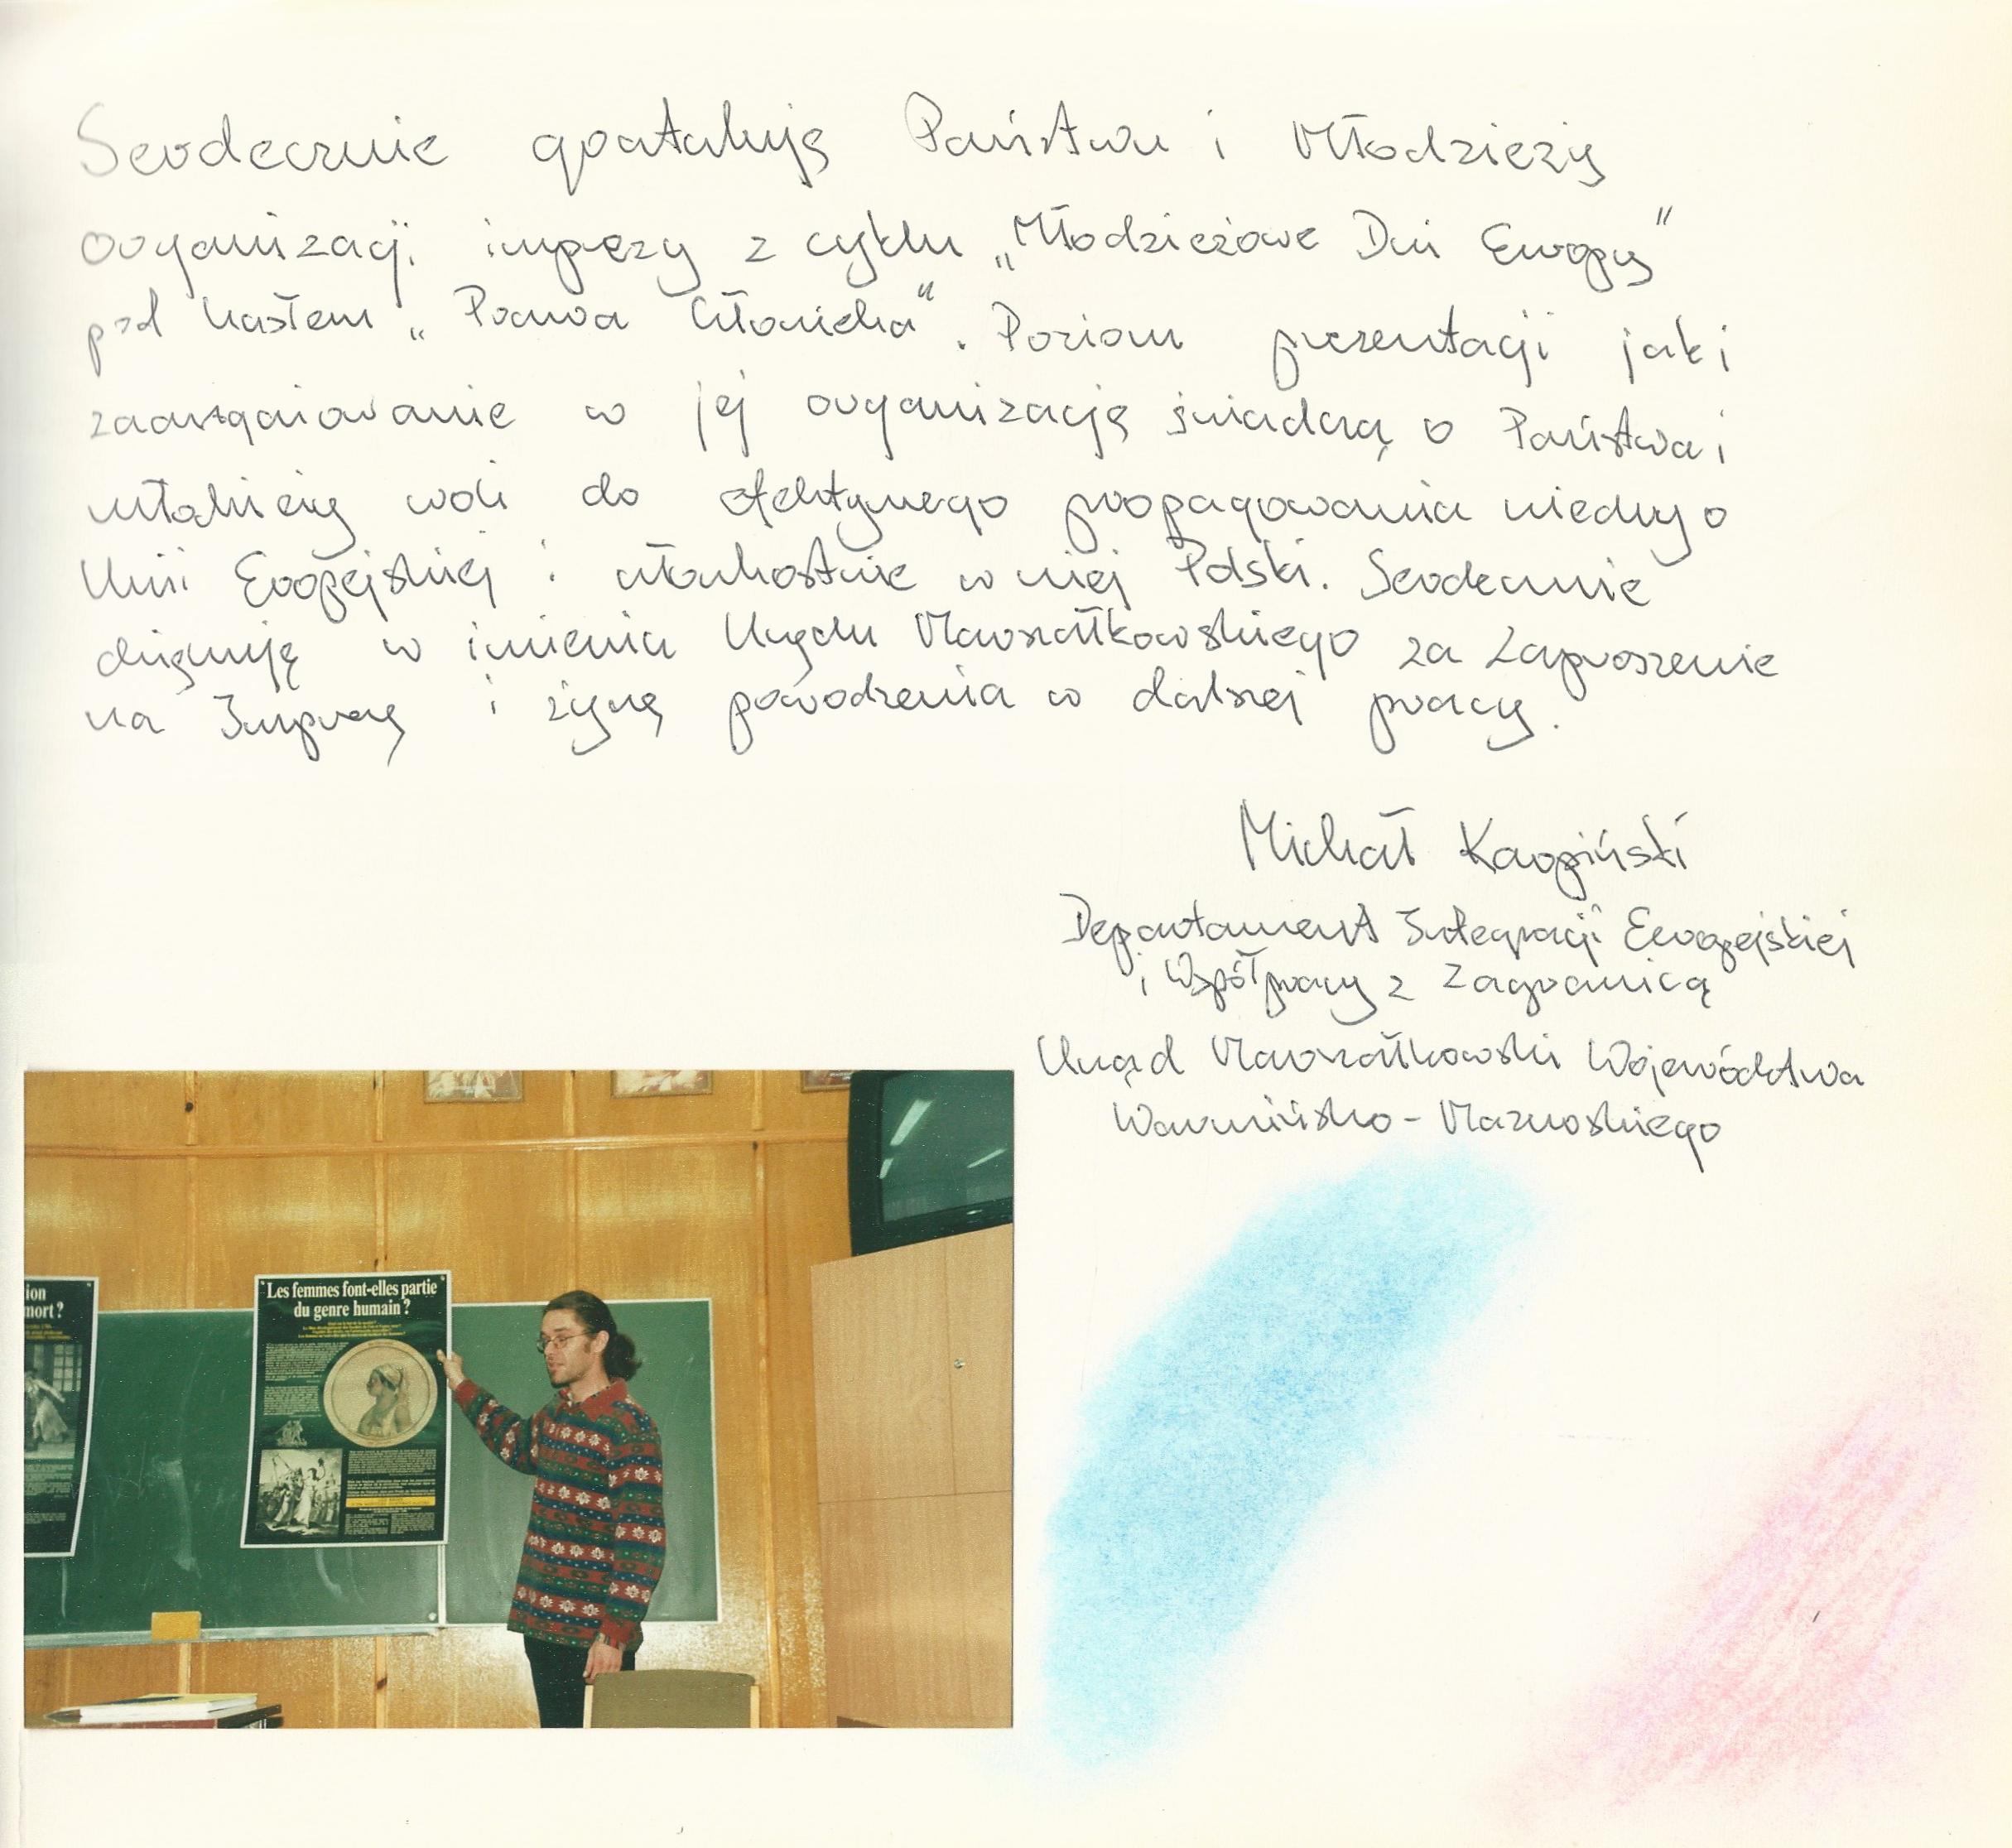 Serdecznie gratuluję Państwu i Młodzieży
organizacji imprezy z cyklu „Młodzieżowe Dni Europy”
pod hasłem „Prawa Człowieka”. Poziom prezentacji jaki
zaangażowanie w jej organizację świadczą o Państwa i
młodzieży woli do efektywnego propagowania wiedzy o
Unii Europejskiej i członkostwie w niej Polski. Serdecznie
dziękuję w imieniu Urzędu Marszałkowskiego za Zaproszenie
na Imprezę i życzę powodzenia w dalszej pracy.
Michał Karpiński
Departament Integracji Europejskiej
i Współpracy z Zagranicą
Urząd Marszałkowski Województwa
Warmińsko-Mazurskiego
ion
mort?
Les femmes font-elles partie
du genre humain?